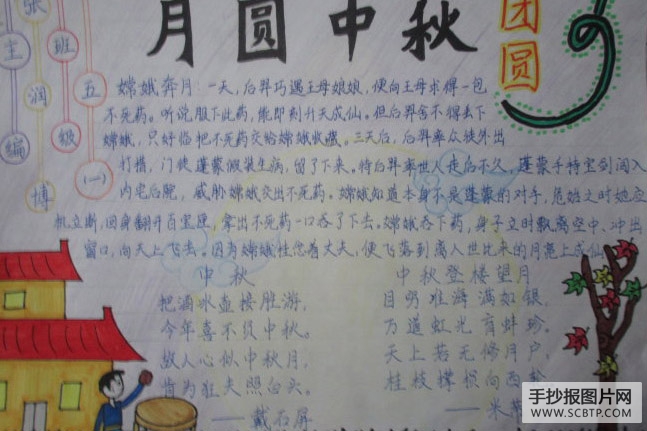 月圆中秋
团圆
主编
张润博
班级
五(一)
嫦娥奔月 一天，后羿巧遇王母娘娘，便向王母求得一包
不死药。听说服下此药，能即刻升天成仙。但后羿舍不得丢下
嫦娥，只好临把不死药交给嫦娥收藏。三天后，后羿率众徒外出
打猎，门徒蓬蒙假装生病，留了下来。待后羿率世人走后不久，蓬蒙手持宝剑闯入
内宅后院，威胁嫦娥交出不死药。嫦娥知道本身不是蓬蒙的对手，危殆之时她应
机立断，回身翻开百宝匣，拿出不死药一口吞了下去。嫦娥吞下药，身子立时飘离空中、冲出
窗口，向天上飞去。因为嫦娥牵念着丈夫，便飞落到离人世比来的月亮上成仙
中秋
把酒冰壶接胜游，
今年喜不负中秋。
故人心似中秋月，
肯为狂夫照白头。
——戴石屏
中秋登楼望月
目穷淮海满如银，
万道虹光育蚌珍。
天上若无修月户，
桂枝撑损向西轮
——米芾
手抄报图片网
WWW.SCBTP.COM